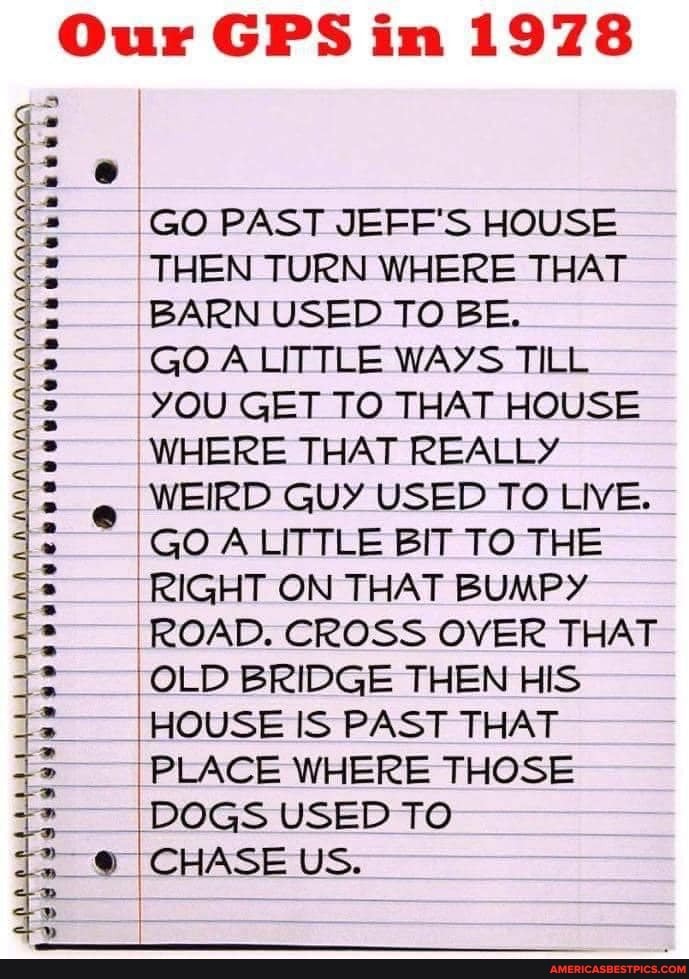 Our GPS in 1978
GO PAST JEFF'S HOUSE
THEN TURN WHERE THAT
BARN USED TO BE.
GO A LITTLE WAYS TILL
YOU GET TO THAT HOUSE
WHERE THAT REALLY
WEIRD GUY USED TO LIVE.
GO A LITTLE BIT TO THE
RIGHT ON THAT BUMPY
ROAD. CROSS OVER THAT
OLD BRIDGE THEN HIS
HOUSE IS PAST THAT
PLACE WHERE THOSE
DOGS USED TO
CHASE US.
AMERICASBESTPICS.COM